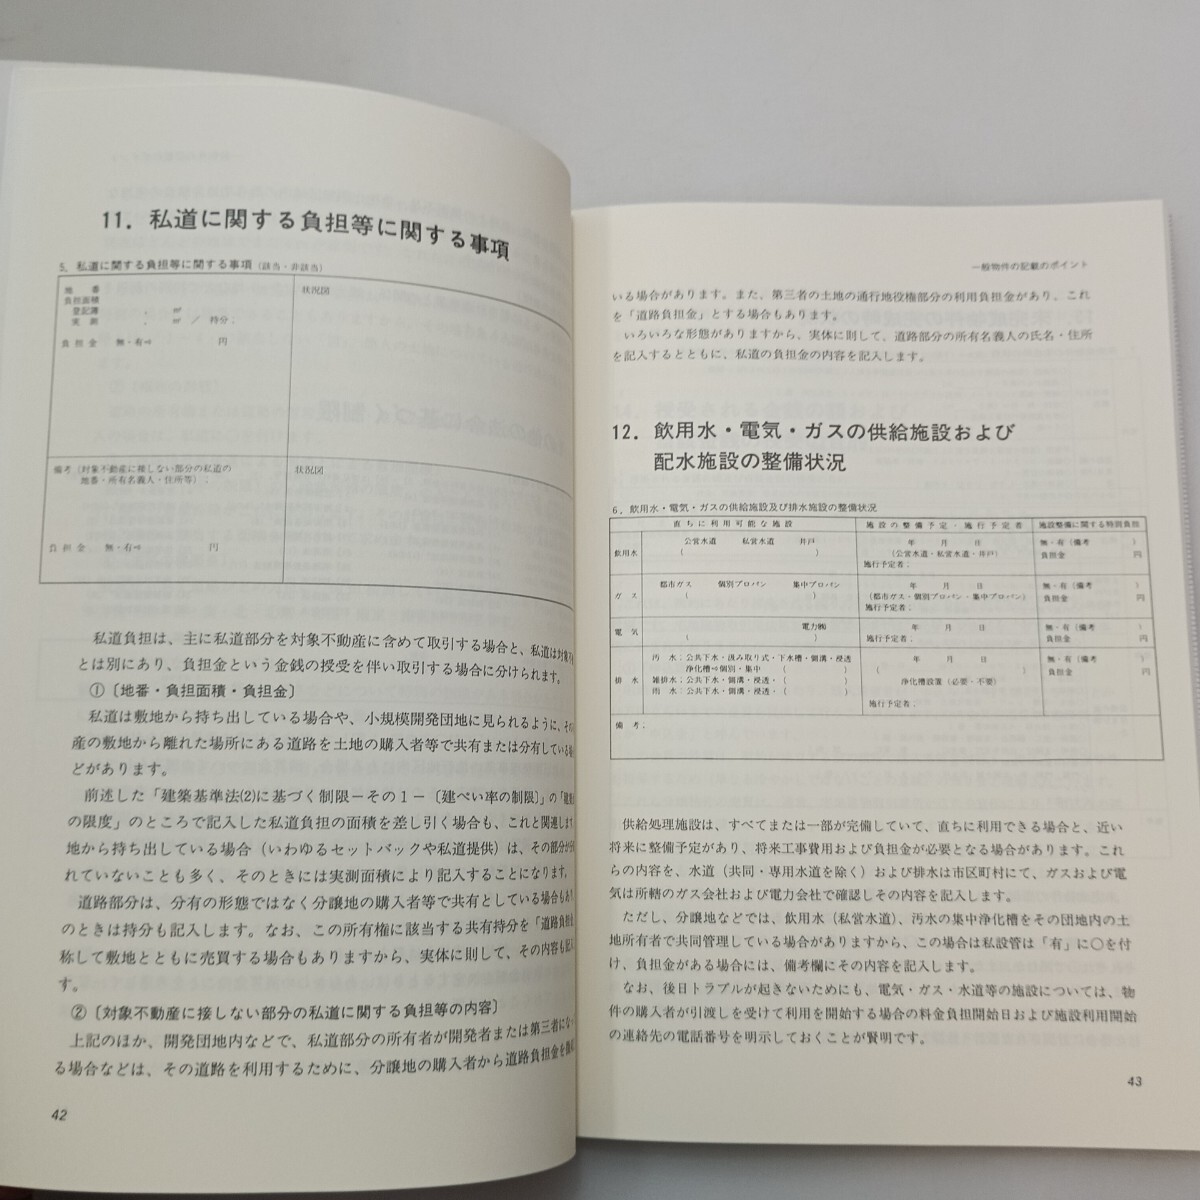 11. 私道に関する負担等に関する事項
5. 私道に関する負担等に関する事項（該当・非該当）
地　番
負担面積
登記簿　．　㎡
実　測　．　㎡　／　持分：
負担金　無・有⇨　円
状況図
備考（対象不動産に接しない部分の私道の
地番・所有名義人・住所等）：
負担金　無・有⇨　円
状況図
私道負担は、主に私道部分を対象不動産に含めて取引する場合と、私道は対象不
とは別にあり、負担金という金銭の授受を伴い取引する場合に分けられます。
①〔地番・負担面積・負担金〕
私道は敷地から持ち出している場合や、小規模開発団地に見られるように、その
産の敷地から離れた場所にある道路を土地の購入者等で共有または分有している
どがあります。
前述した「建築基準法(2)に基づく制限－その１－〔建ぺい率の制限〕」の「建
の限度」のところで記入した私道負担の面積を差し引く場合も、これと関連します
地から持ち出している場合（いわゆるセットバックや私道提供）は、その部分が
れていないことも多く、そのときには実測面積により記入することになります。
道路部分は、分有の形態ではなく分譲地の購入者等で共有としている場合もあり
のときは持分も記入します。なお、この所有権に該当する共有持分を「道路負担
称して敷地とともに売買する場合もありますから、実体に則して、その内容も記
す。
②〔対象不動産に接しない部分の私道に関する負担等の内容〕
上記のほか、開発団地内などで、私道部分の所有者が開発者または第三者にな
る場合などは、その道路を利用するために、分譲地の購入者から道路負担金を
42
一般物件の記載のポイント
いる場合があります。また、第三者の土地の通行地役権部分の利用負担金があり、これ
を「道路負担金」とする場合もあります。
いろいろな形態がありますから、実体に則して、道路部分の所有名義人の氏名・住所
を記入するとともに、私道の負担金の内容を記入します。
12. 飲用水・電気・ガスの供給施設および
配水施設の整備状況
6. 飲用水・電気・ガスの供給施設及び排水施設の整備状況
直ちに利用可能な施設　施設の整備予定・施行予定者　施設整備に関する特別負担
飲用水　公営水道　私営水道　井戸　年　月　日　無・有（備考　）
（　）　（公営水道・私営水道・井戸）　負担金　円
施行予定者：
ガス　都市ガス　個別プロパン　集中プロパン　年　月　日　無・有（備考　）
（　）　（都市ガス・個別プロパン・集中プロパン）　負担金　円
施行予定者：
電気　電力㈱　年　月　日　無・有（備考　）
（　）　施行予定者：　負担金　円
排水　汚　水：公共下水・汲み取り式・下水槽・側溝・浸透　年　月　日　無・有（備考　）
浄化槽⇨個別・集中（　）　（　）　負担金　円
雑排水：公共下水・側溝・浸透・（　）　浄化槽設置（必要・不要）
雨　水：公共下水・側溝・浸透・（　）
施行予定者：
備考：
供給処理施設は、すべてまたは一部が完備していて、直ちに利用できる場合と、近い
将来に整備予定があり、将来工事費用および負担金が必要となる場合があります。これ
らの内容を、水道（共同・専用水道を除く）および排水は市区町村にて、ガスおよび電
気は所轄のガス会社および電力会社で確認しその内容を記入します。
ただし、分譲地などでは、飲用水（私営水道）、汚水の集中浄化槽をその団地内の土
地所有者で共同管理している場合がありますから、この場合は私設管は「有」に○を付
け、負担金がある場合には、備考欄にその内容を記入します。
なお、後日トラブルが起きないためにも、電気・ガス・水道等の施設については、物
件の購入者が引渡しを受けて利用を開始する場合の料金負担開始日および施設利用開始
の連絡先の電話番号を明示しておくことが賢明です。
43